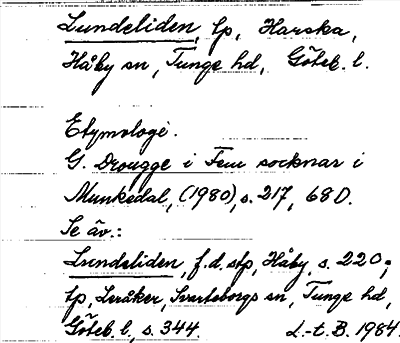 Lundeliden, tp, Harska,
Håby sn, Tunge hd, Göteb. l.
Etymologi.
G. Drougge i Fem socknar i
Munkedal, (1980), s. 217, 68 D.
Se äv.:
Lundeliden, f.d. stp, Håby, s. 220;
tp, Leråker, Svarteborgs sn, Tunge hd,
Göteb. l., s. 344. L.-t. B. 1984.